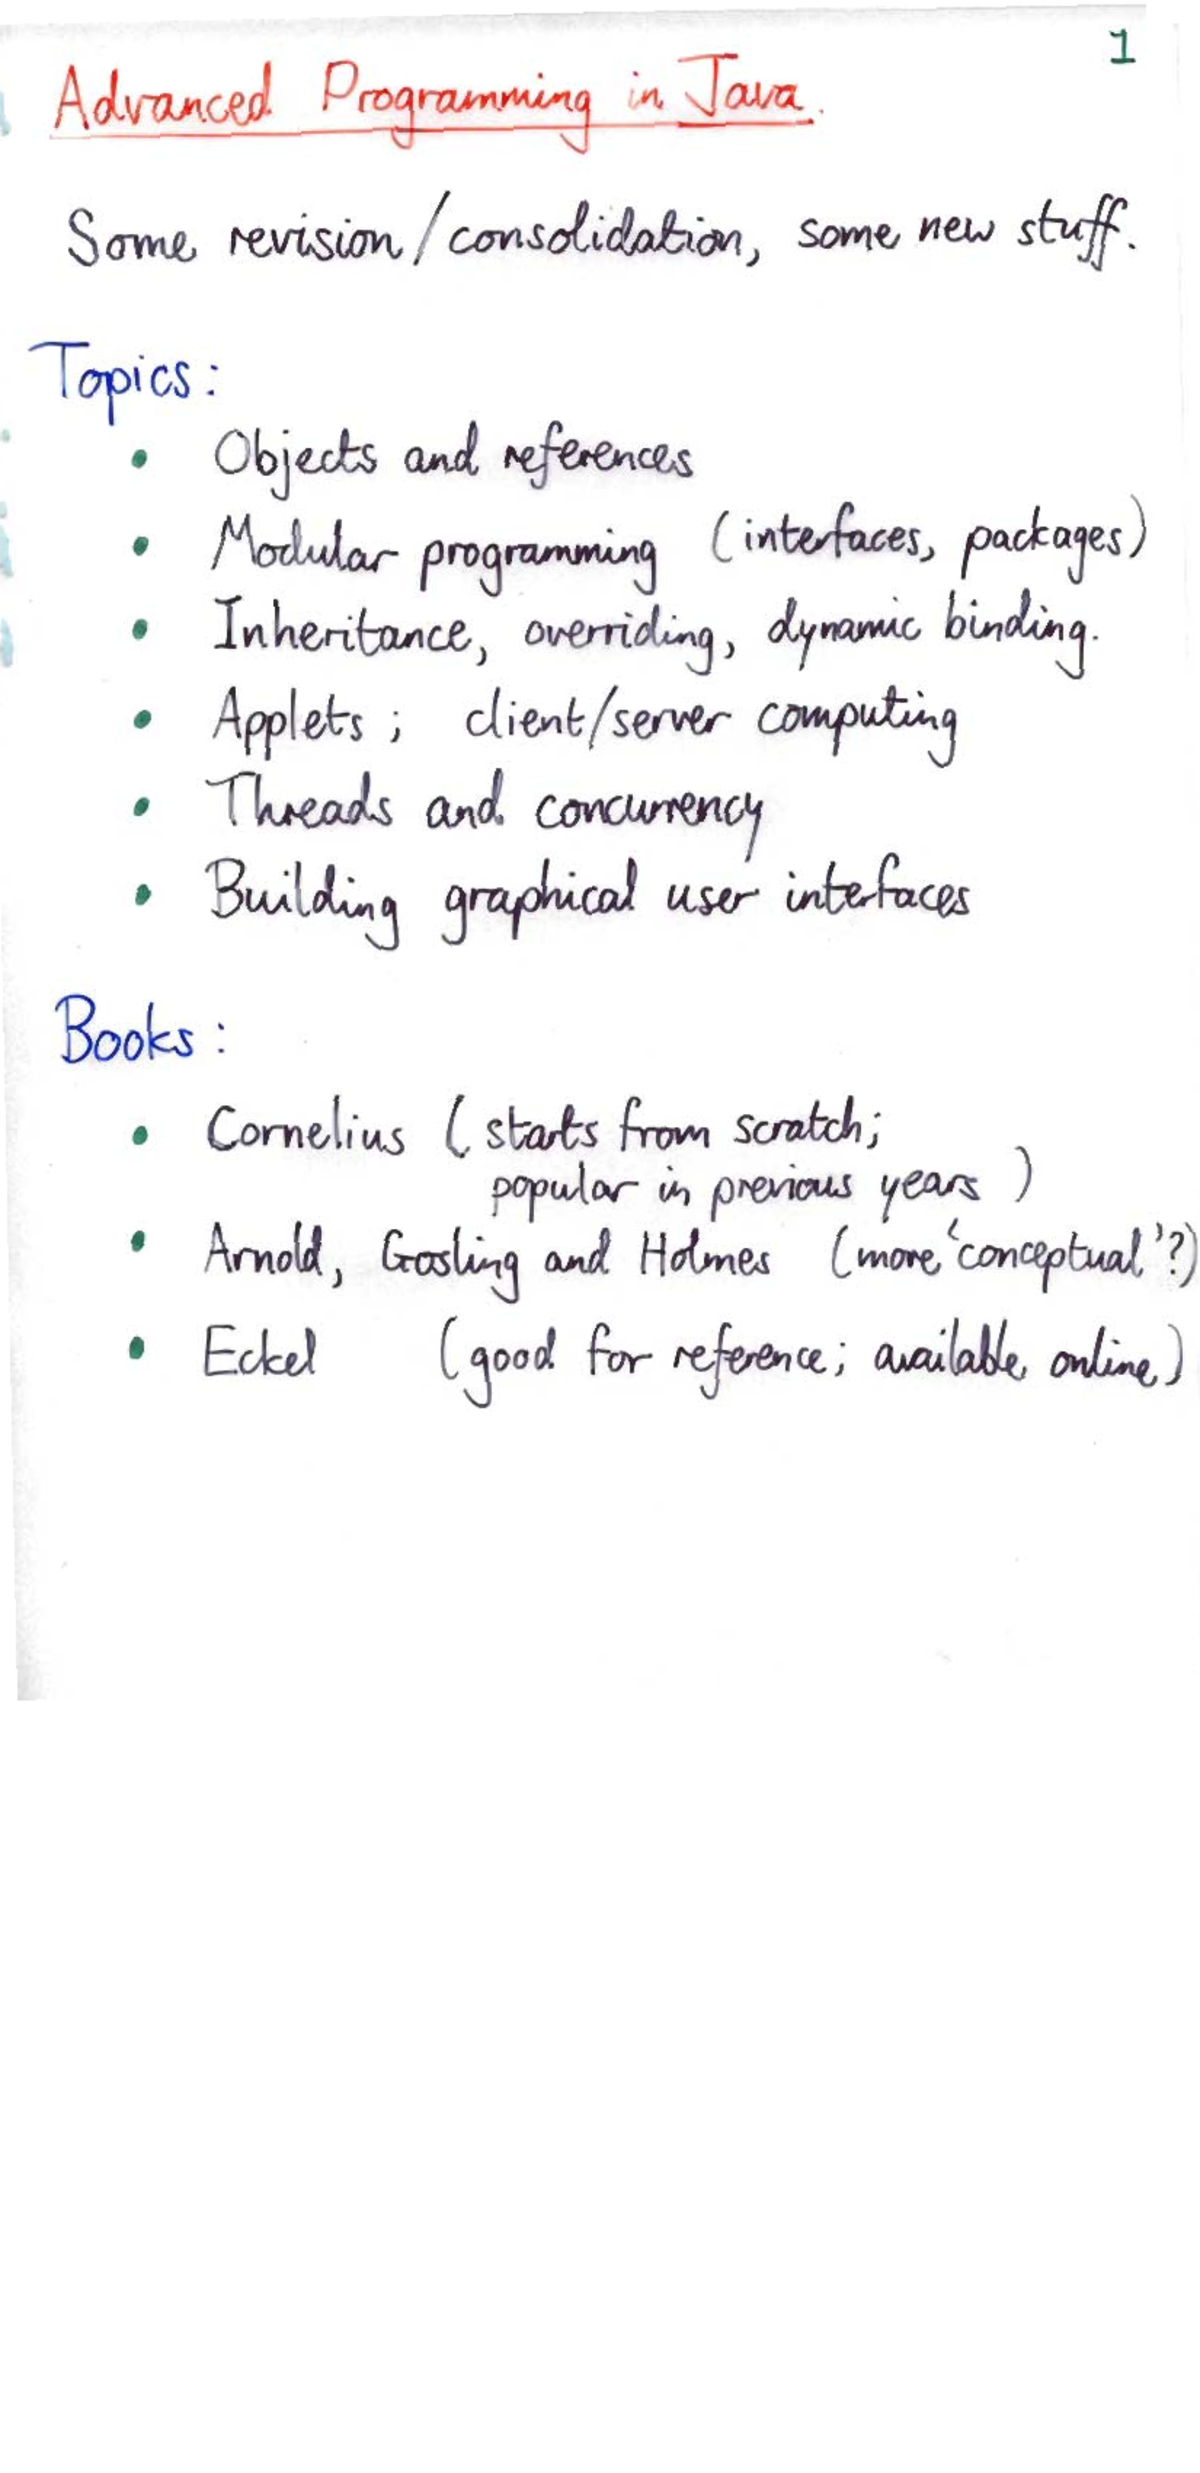 1
Advanced Programming in Java.
Some revision/consolidation, some new stuff.
Topics:
• Objects and references
• Modular programming (interfaces, packages)
• Inheritance, overriding, dynamic binding.
• Applets; client/server computing
• Threads and concurrency
• Building graphical user interfaces
Books:
• Cornelius (starts from scratch;
popular in previous years)
• Arnold, Gosling and Holmes (more 'conceptual'?)
• Eckel (good for reference; available online)